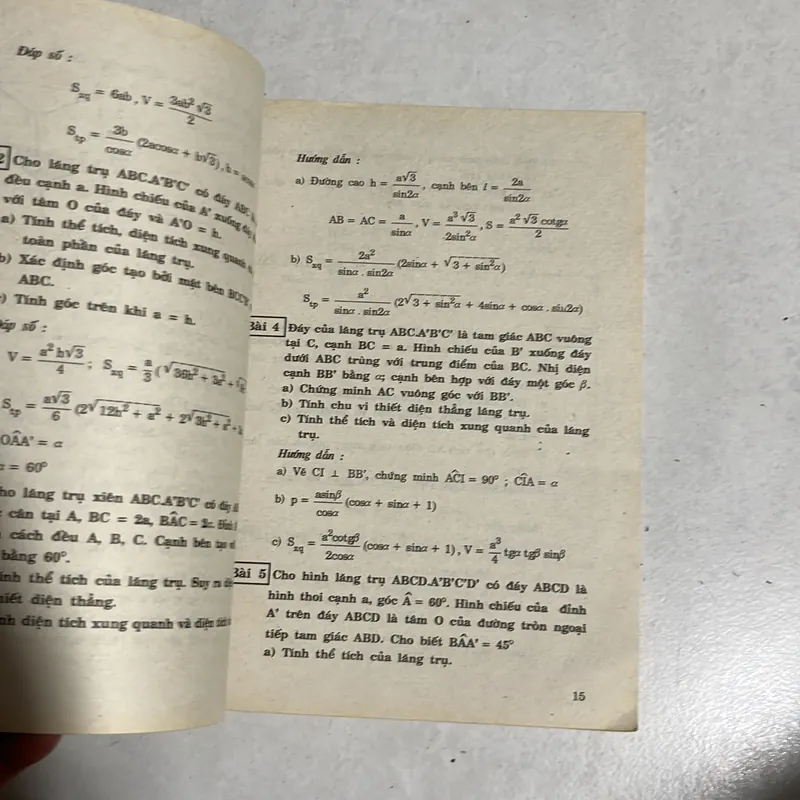 Đáp số :
S_xq = 6ab , V = \frac{3ab²√3}{2}
S_tp = \frac{3b}{cosα} (2acosα + b√3) , h =
2 Cho lăng trụ ABC.A'B'C' có đáy ABC
đều cạnh a. Hình chiếu của A' xuống
với tâm O của đáy và A'O = h.
a) Tính thể tích, diện tích xung quanh
toàn phần của lăng trụ.
b) Xác định góc tạo bởi mặt bên
ABC.
c) Tính góc trên khi a = h.
Đáp số :
V = \frac{a²h√3}{4} ; S_xq = \frac{a}{3} (
S_tp = \frac{a√3}{6} (2√(12h² + a²) + 2√(3h² + a²) +
OÂA' = α
= 60°
ho lăng trụ xiên ABC.A'B'C' có đáy
cân tại A, BC = 2a, BÂC =
cách đều A, B, C. Cạnh bên tạo
bằng 60°.
ính thể tích của lăng trụ. Suy ra
hiết diện thẳng.
nh diện tích xung quanh và diện tích
Hướng dẫn :
a) Đường cao h = \frac{a√3}{sin2α} , cạnh bên l = \frac{2a}{sin2α}
AB = AC = \frac{a}{sinα} , V = \frac{a³√3}{2sin²α} , S = \frac{a²√3 cotgα}{2}
b) S_xq = \frac{2a²}{sinα . sin2α} (2sinα + √(3 + sin²α))
S_tp = \frac{a²}{sinα . sin2α} (2√(3 + sin²α) + 4sinα + cosα . sin2α)
Bài 4 Đáy của lăng trụ ABC.A'B'C' là tam giác ABC vuông
tại C, cạnh BC = a. Hình chiếu của B' xuống đáy
dưới ABC trùng với trung điểm của BC. Nhị diện
cạnh BB' bằng α; cạnh bên hợp với đáy một góc β.
a) Chứng minh AC vuông góc với BB'.
b) Tính chu vi thiết diện thẳng lăng trụ.
c) Tính thể tích và diện tích xung quanh của lăng
trụ.
Hướng dẫn :
a) Vẽ CI ⊥ BB', chứng minh AĈI = 90° ; CÎA = α
b) p = \frac{asinβ}{cosα} (cosα + sinα + 1)
c) S_xq = \frac{a²cotgβ}{2cosα} (cosα + sinα + 1) , V = \frac{a³}{4} tgα tgβ sinβ
Bài 5 Cho hình lăng trụ ABCD.A'B'C'D' có đáy ABCD là
hình thoi cạnh a, góc Â = 60°. Hình chiếu của đỉnh
A' trên đáy ABCD là tâm O của đường tròn ngoại
tiếp tam giác ABD. Cho biết BÂA' = 45°
a) Tính thể tích của lăng trụ.
15